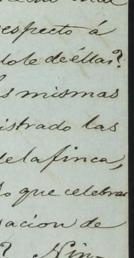 respecto á
dote de éllas?
s mismas
istrado las
de la finca,
lo que celebras
sacion de
? Nin-